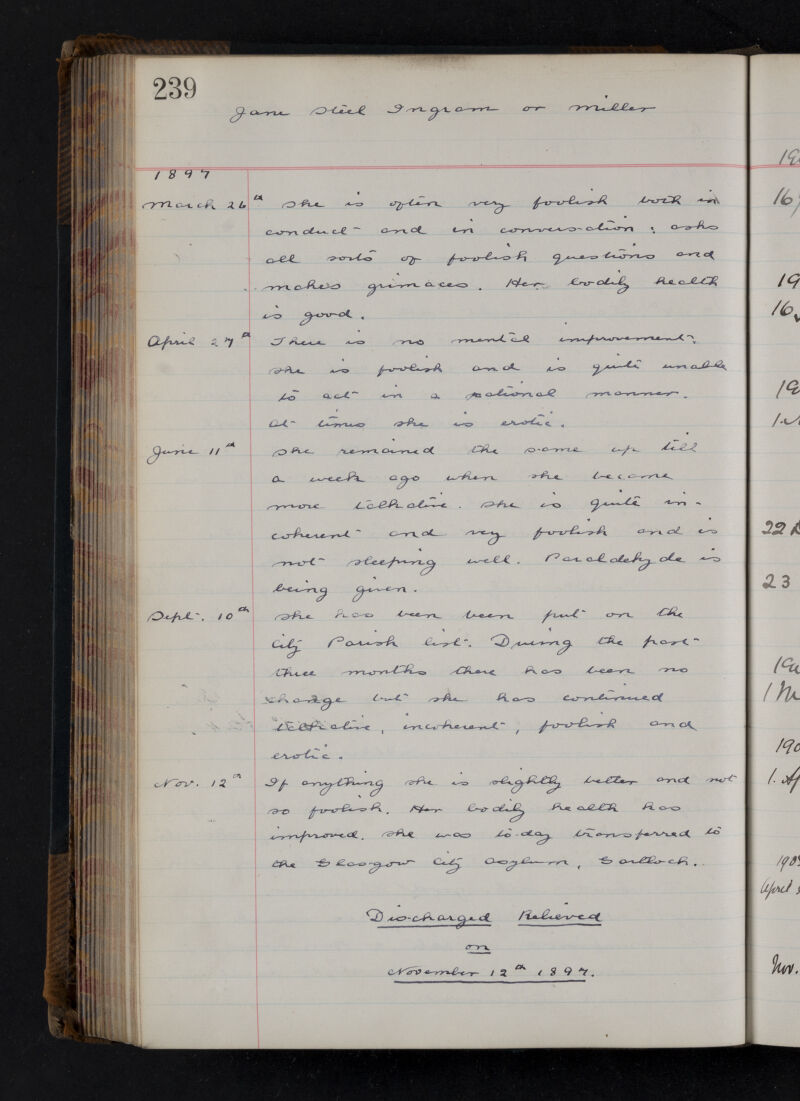 239
Jane Steel Ingram or Miller
1897
March 26th She is often very foolish both in
conduct and in conversation; asks
all sorts of foolish questions and
makes grimaces. Her bodily health
is good.
April 27th There is no mental improvement.
She is foolish and is quite unable
to act in a rational manner.
At times she is erotic.
June 11th She remained the same up till
a week ago when she became
more talkative. She is quite in-
coherent and very foolish and is
not sleeping well. Paraldehyde is
being given.
Sept. 10th She has been been put on the
City Parish list. During the past
three months there has been no
change but she has continued
talkative, incoherent, foolish and
erotic.
Nov. 12th If anything she is slightly better and not
so foolish. Her bodily health has
improved. She was to-day transferred to
the Glasgow City Asylum, Gartloch.
Discharged Relieved
on
November 12th 1897.
16
19
16
22
23
190
1.
190
April
Nov.